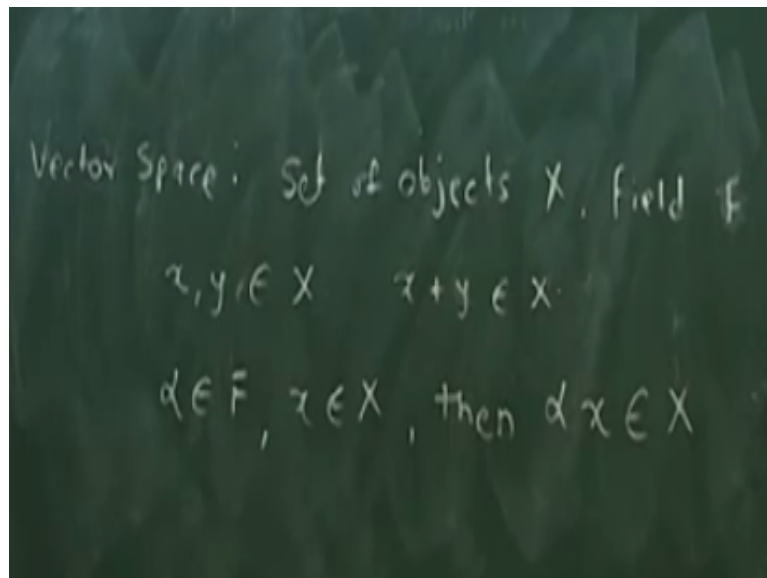 Vector Space: Set of objects X, Field F
x, y, ∈ X x + y ∈ X.
α ∈ F, x ∈ X, then α x ∈ X